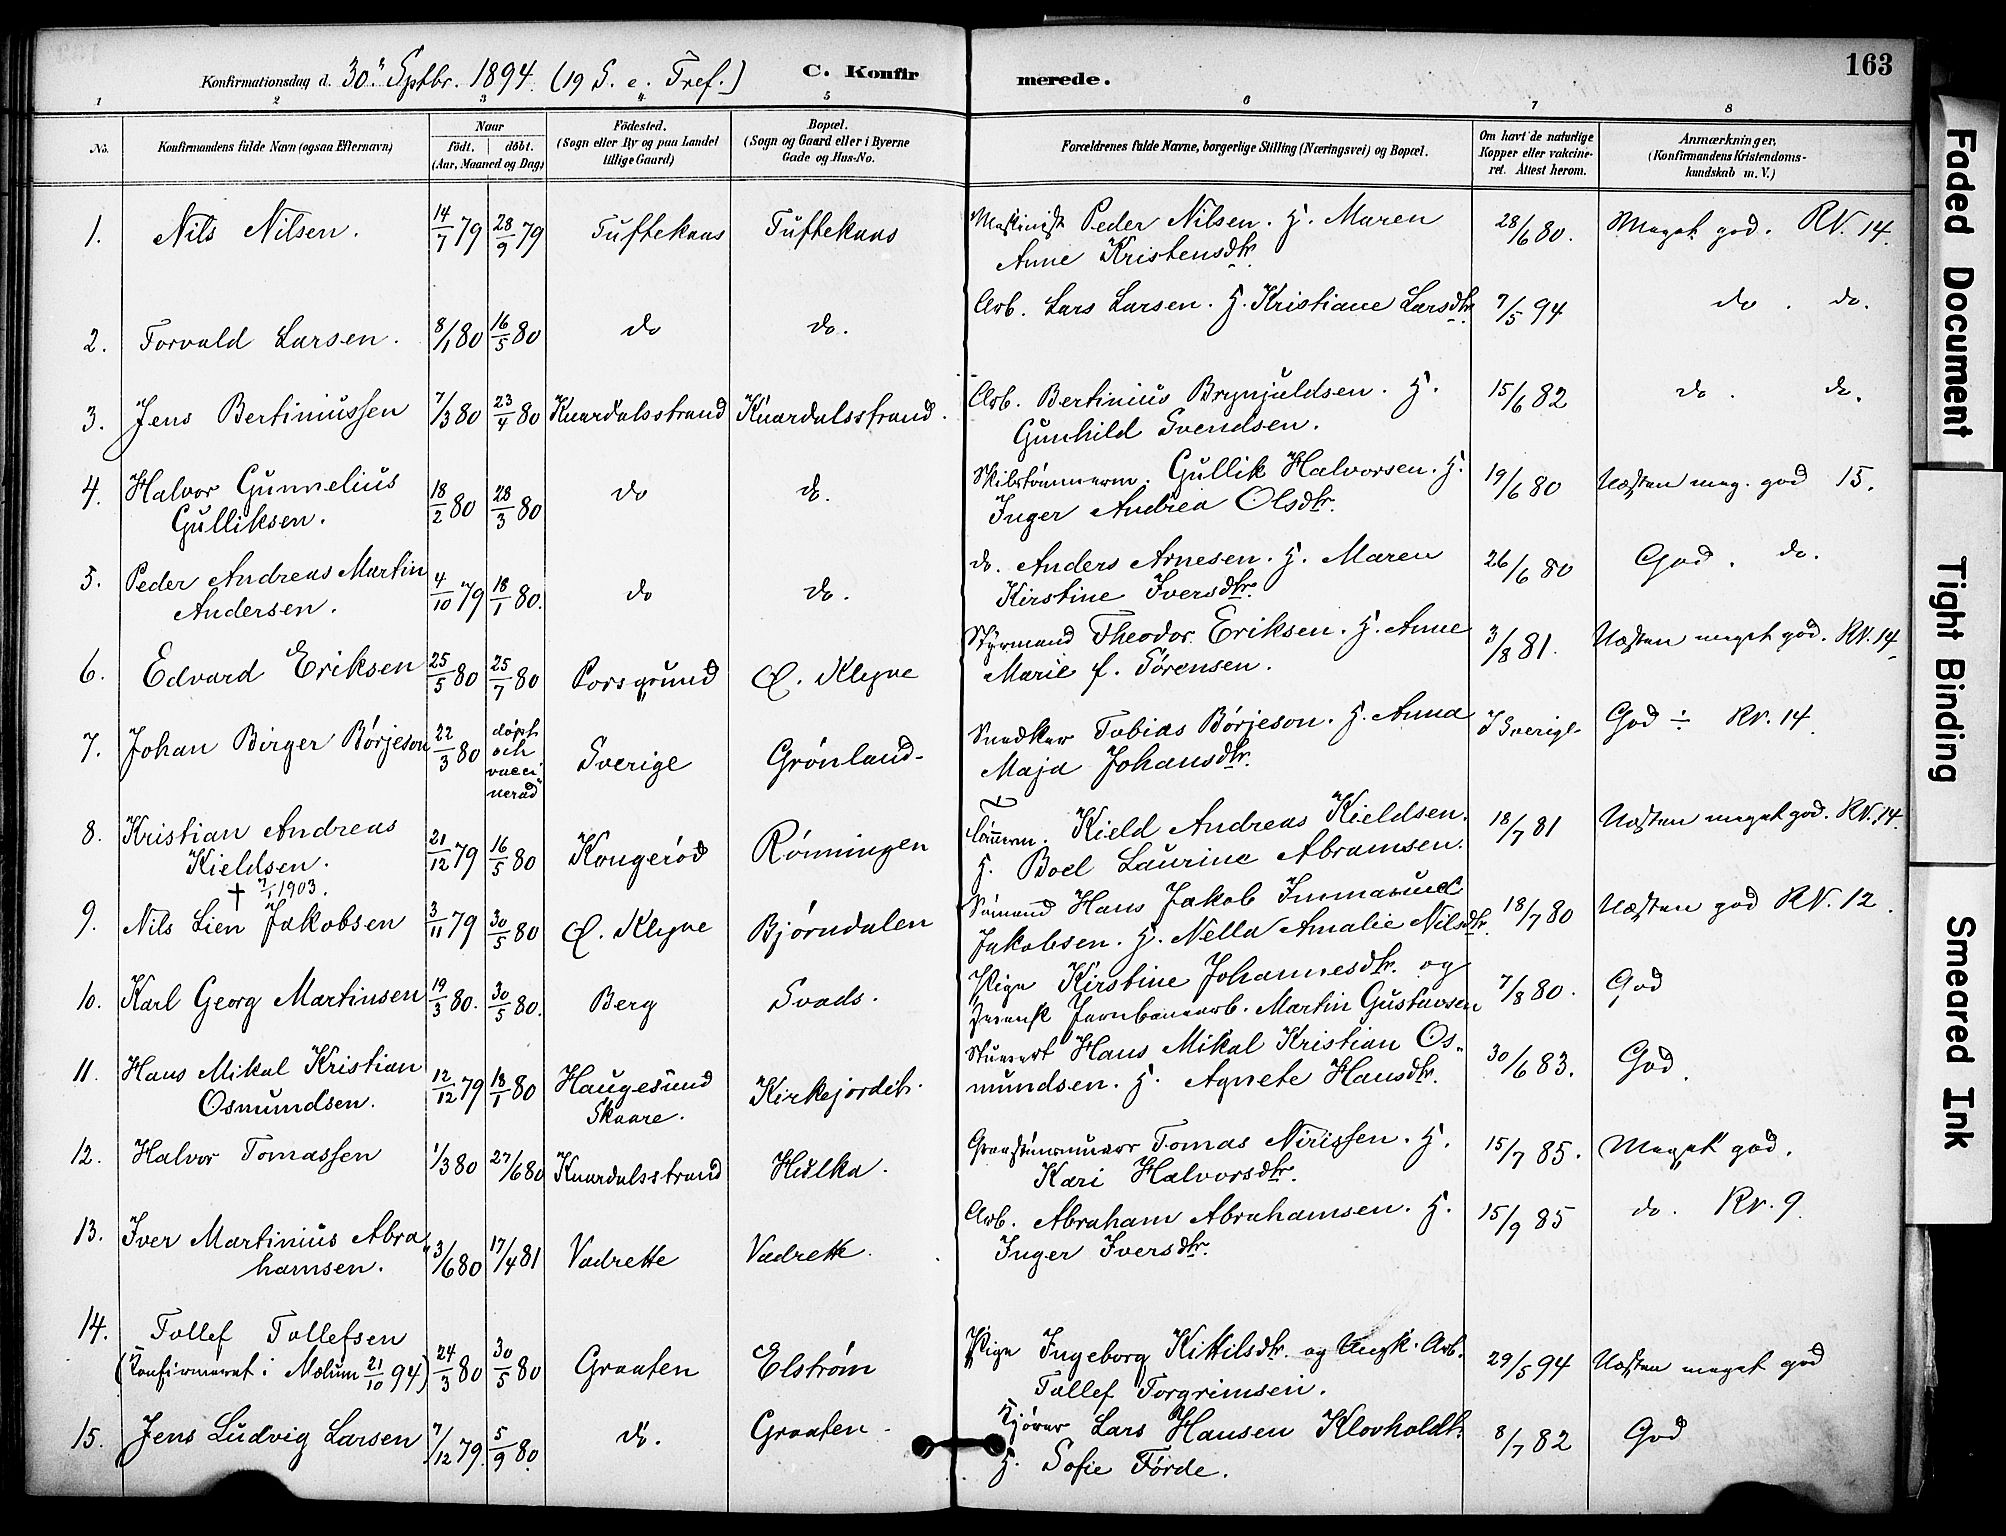 163
Konfirmationsdag d. 30. Sptbr. 1894. (19 S. e. Tref.) C. Konfirmerede.
1 2 3 4 5 6 7 8
No. Konfirmandens fulde Navn (ogsaa Efternavn) Naar født. døbt. (Aar, Maaned og Dag) Fødested. (Sogn eller By og paa Landet tillige Gaard) Bopæl. (Sogn og Gaard eller i Byerne Gade og Hus-No. Forældrenes fulde Navne, borgerlige Stilling (Næringsvei) og Bopæl. Om havt de naturlige Kopper eller vakcineret. Attest herom. Anmærkninger, (Konfirmandens Kristendomskundskab m. V.)
1. Nils Nilsen. 14/7 79 28/9 79 Tuftekaas Tuftekaas Maskinist Peder Nilsen. H. Maren 28/6 80. Meget god. RV. 14.
Anne Kristensdtr.
2. Torvald Larsen. 8/1 80 16/5 80 do do. Arb. Lars Larsen. H. Kristiane Larsdtr. 7/5 94 do. do.
3. Jens Bertiniussen 7/3 80 23/4 80 Knardalsstrand Knardalsstrand. Arb. Bertinius Brynjuldsen. H. 15/6 82 do. do.
Gunhild Svendsen.
4. Halvor Gunnelius 18/2 80 28/3 80 do do. Skibstømmerm. Gullik Halvorsen. H. 19/6 80 Næsten meg. god 15.
Gulliksen. Inger Andrea Olsdtr.
5. Peder Andreas Martin 4/10 79 18/1 80. do do. do. Anders Arnesen. H. Maren 26/6 80 God. do.
Andersen. Kirstine Iversdtr.
6. Edvard Eriksen 25/5 80 25/7 80 Porsgrund Ø. Klyve Styrmand Theodor Eriksen. H. Anne 3/8 81. Næsten meget god. RV. 14
Marie f. Sørensen.
7. Johan Birger Börjeson 22/3 80 döpt och vaccinerad Sverige Grønland. Snedker Tobias Börjeson. H. Anna I Sverige God ÷ Rv. 14.
Maja Johansdtr.
8. Kristian Andreas 21/12 79 16/5 80 Kongerød Rønningen Tømrm. Kield Andreas Kieldsen. 18/7 81 Næsten meget god. RV. 14.
Kieldsen. H. Boel Laurine Abramsen.
† 7/1 1903.
9. Nils Lien Jakobsen 3/11 79 30/5 80 Ø. Klyve Bjørndalen Sømand Hans Jakob Immanuel 18/7 80 Næsten god RV. 12.
Jakobsen. H. Nella Amalie Nilsdtr.
10. Karl Georg Martinsen 19/3 80. 30/5 80. Berg Svads. Pige Kirstine Johannesdtr. og 7/8 80. God
Svensk Jernbanearb. Martin Gustavsen
11. Hans Mikal Kristian 12/12 79 18/1 80 Haugesund Kirkejordet. Stuvert Hans Mikal Kristian Os- 30/6 83. God.
Osmundsen. Skaare. mundsen. H. Agnete Hansdtr.
12. Halvor Tomassen 1/3 80 27/6 80 Knardalsstrand Hulka. Tomas Nirissen. H. 15/7 85. Meget god.
Kari Halvorsdtr.
13. Iver Martinius Abra- 3/6 80 17/4 81 Vadrette Vadrette. Arb. Abraham Abrahamsen. H. 15/9 85 do. Rv. 9
hamsen. Inger Iversdtr.
14. Tollef Tollefsen 24/3 80 30/5 80 Graaten Elstrøm Pige Ingeborg Kittilsdtr. og Ungk. Arb. 29/5 94 Næsten meget god
(Konfirmeret i Mælum 21/10 94) Tollef Torgrimsen.
15. Jens Ludvig Larsen 7/12 79. 5/9 80 do. Graaten. Kjører Lars Hansen Klovholdt. 8/7 82 God
H. Sofie Førde.
Faded Document
Tight Binding
Smeared Ink